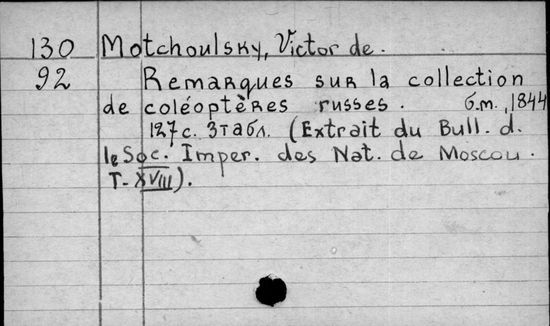 130 Motchoulsky, Victor de.
92 Remarques sur la collection
de coléoptères russes. б.m., 1844
127 c. 3 табл. (Extrait du Bull. d.
le Soc. Imper. des Nat. de Moscou.
T. XVIII).